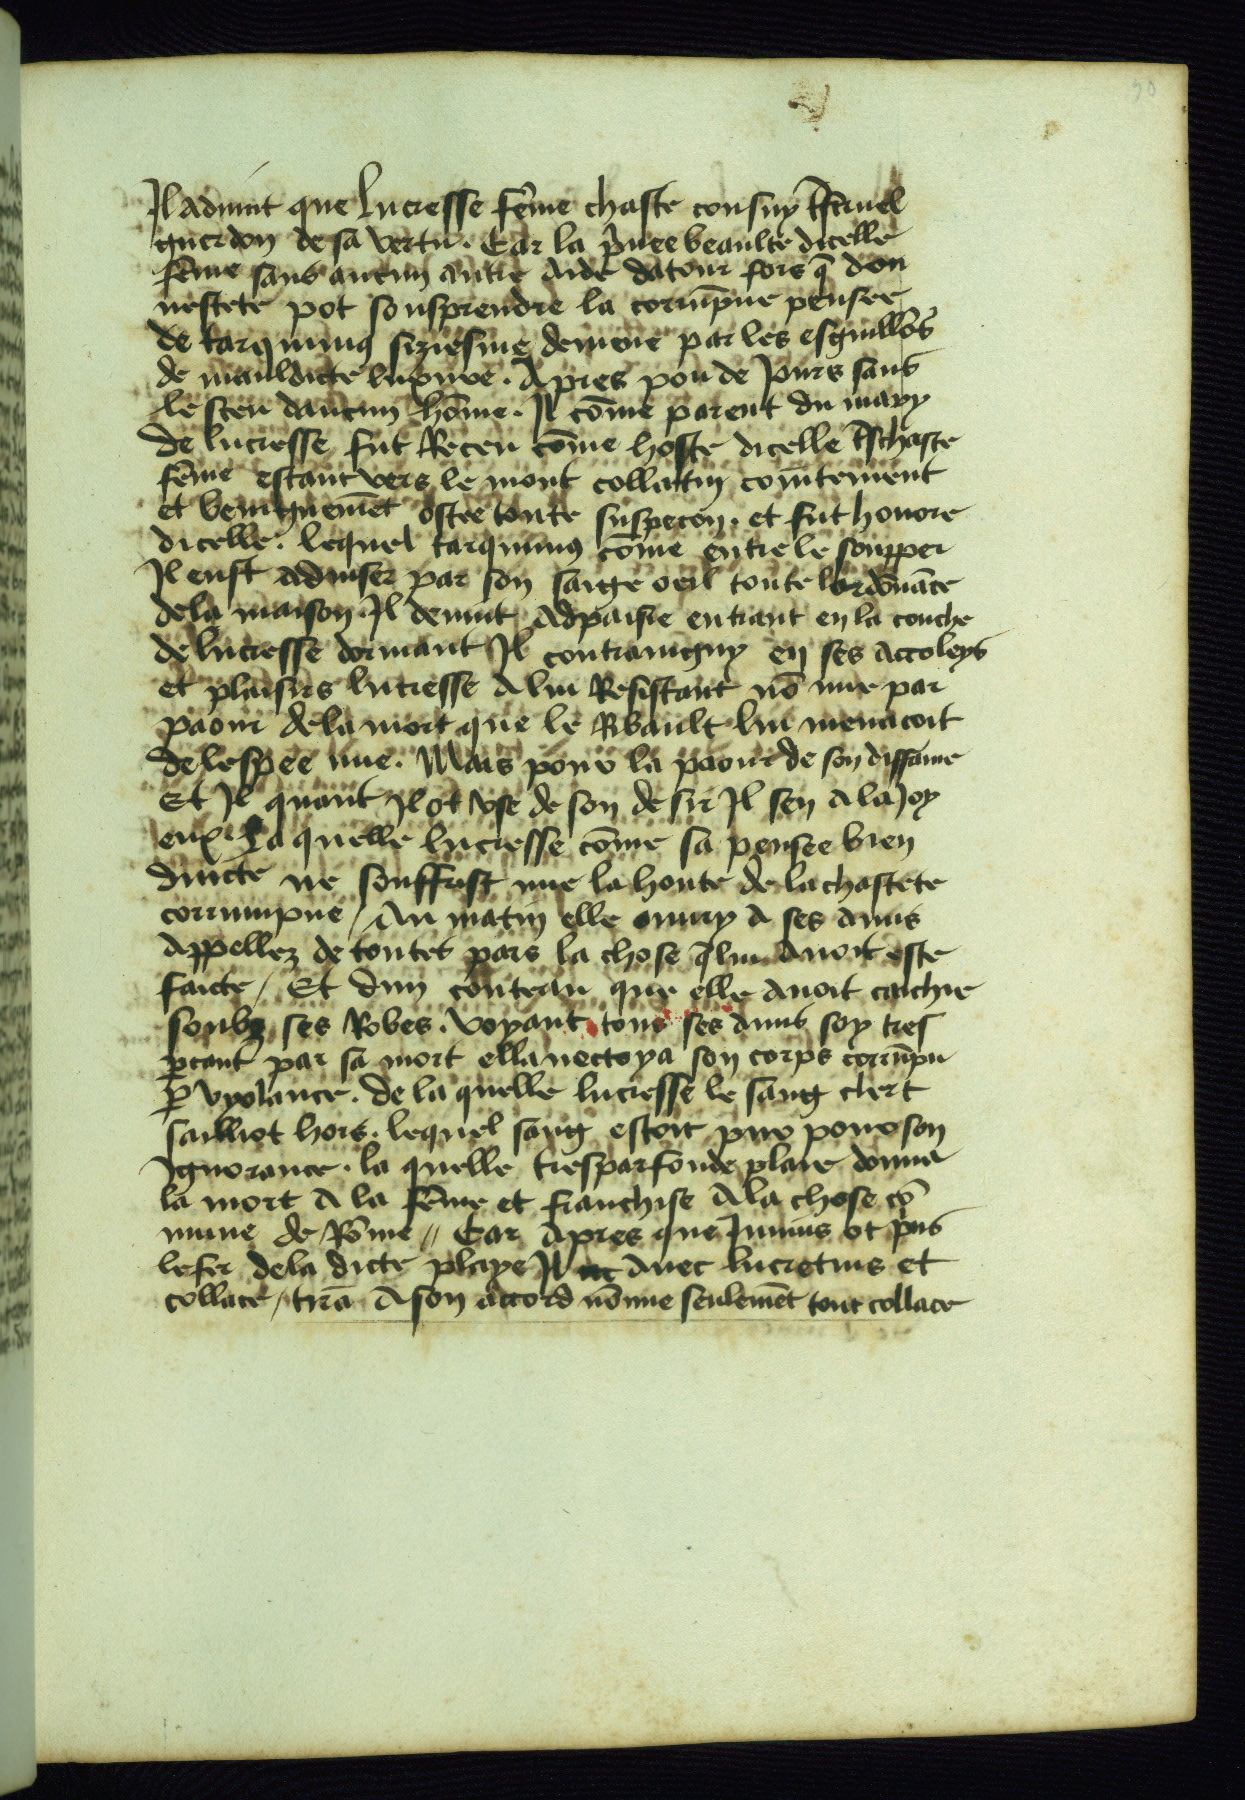 Il aduint que lucresse fe᷑me chaste consuy tscruel
guerdon de sa vertu . Car la p̃uee beaulte dicelle
fe᷑me sans aucun autre aide datour fors q̃ don
nestete pot sousprendre la corrũpue pensee
de tarquinius siziesme demene par les esguillõs
de mauldicte luxure . Apres pou de Jours sans
le sceu daucun hõme . Il cõme parent du mary
de lucresse fut Receu cõme hoste dicelle tschaste
fẽme estant vers le mont collatin cointement
et benignemẽt ostee toute suspecon . et fut honore
dicelle . lequel tarquinius cõme entre le soupper
Il eust aduiser par son saige oeil toute lordõnãce
de la maison . Il deuint Adpaisie entrant en la couche
de lucresse dormant Il contraingny en ses accoleys
et plaisirs lucresse a lui Resistant nõ mie par
paour de la mort que le Ribault lui menacoit
de lespee nue . Mais pour la paour de son diffame
Et Il quant Il ot vse de son desir Il sen ala Joy
eux . La quelle lucresse cõme sa pensee bien
duicte ne souffrist mie la honte de la chastete
corrumpue / Au matin elle ouury a ses amis
Appellez de toutes pars la chose q̃ lui auoit este
faicte / Et dun couteau que elle auoit cachie
soubz ses Robes . voyant tous ses amis soy tres
p̱cant par sa mort ella nectoya son corps corrũpu
p̱ vyolance . de la quelle lucresse le sang chert
sailliot hors . lequel sang estoit pur pour son
Ignorance . la quelle tresparfonde plaie donna
la mort a la fẽme et franchise a la chose cõ
mune de Rõme // Car apres que Junius ot pris
le fer de la dicte playe Il auec lucretius et
collace / tira a son accord nõmie seulemẽt tout collace